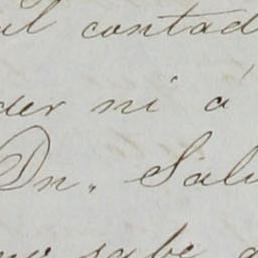 al contad
der ni á
Dn. Salv
sabe a